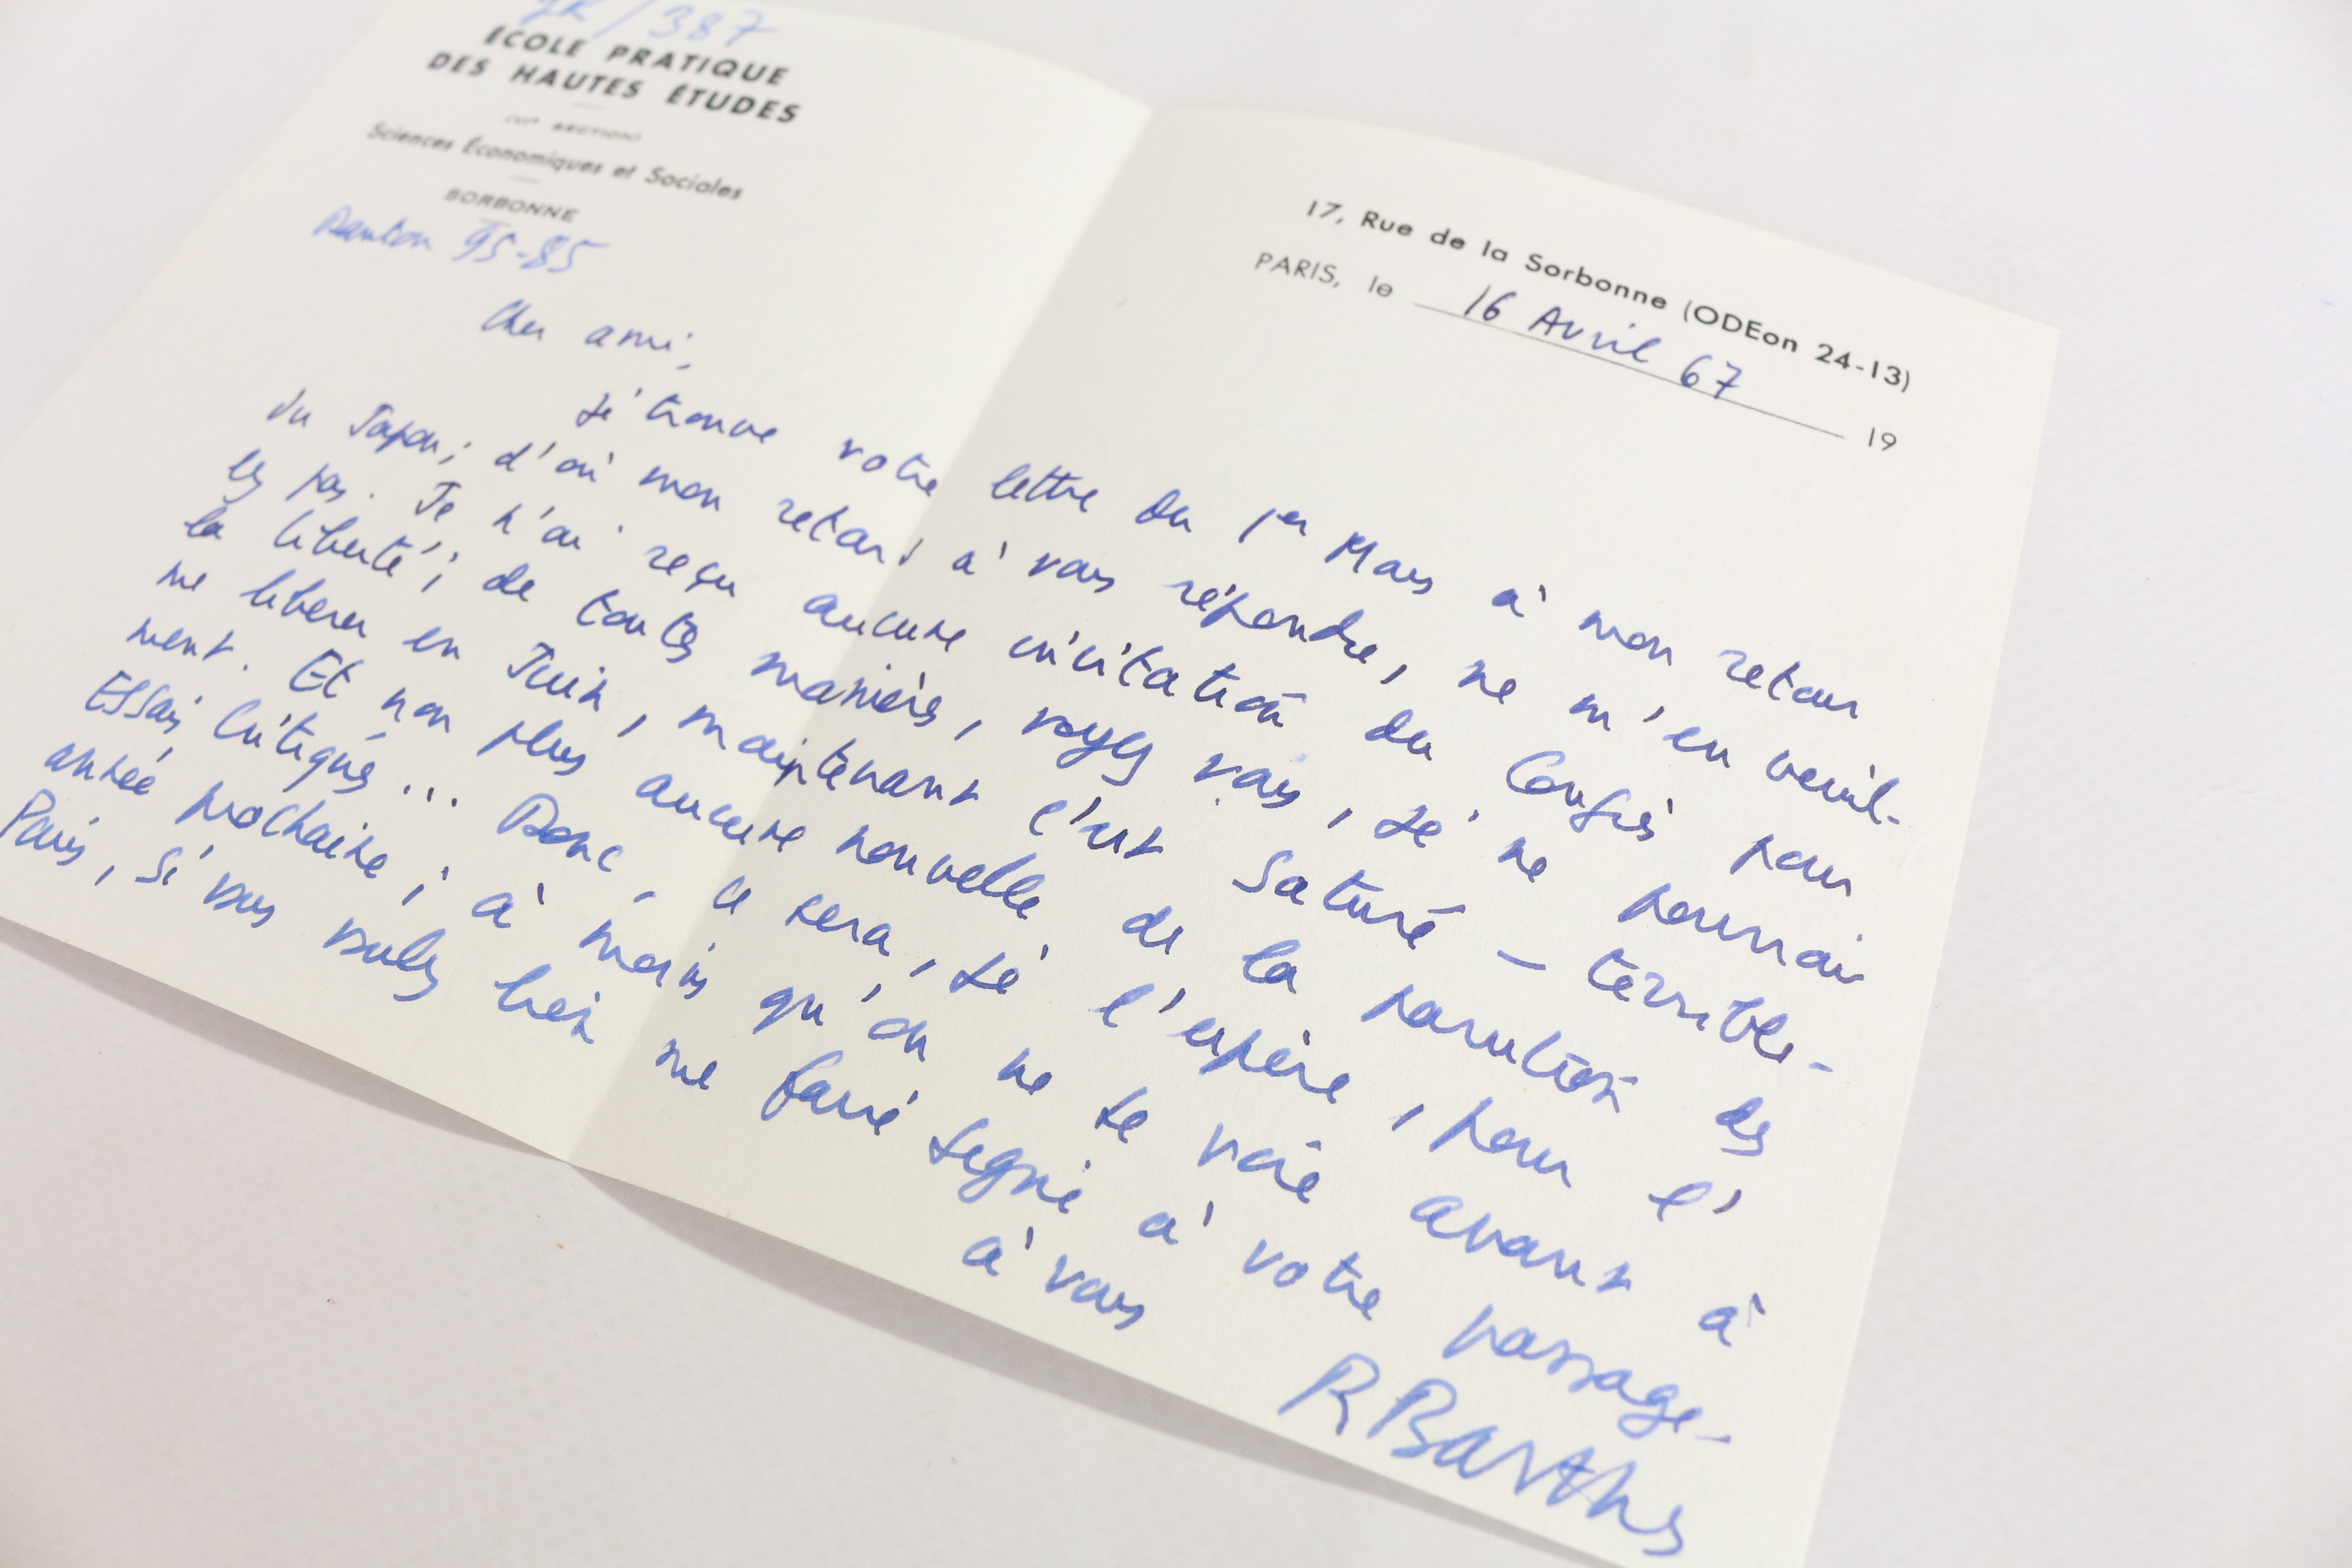 /387
ÉCOLE PRATIQUE
DES HAUTES ÉTUDES
(VIe SECTION)
Sciences Économiques et Sociales
SORBONNE
Danton 95-85
17, Rue de la Sorbonne (ODEon 24-13)
PARIS, le 16 Avril 67 19
Cher ami,
Je trouve votre lettre du 1er Mars à mon retour
du Japon; d'où mon retard à vous répondre, ne m'en veuil-
lez pas. Je n'ai reçu aucune invitation du Congrès pour
la liberté; de toutes manières, voyez vous, je ne pourrais
me libérer en Juin, maintenant c'est saturé – terrible-
ment. Et non plus aucune nouvelle de la parution des
Essais Critiques... Donc, ce sera, je l'espère, pour l'
année prochaine; à moins qu'on ne se voie avant à
Paris, si vous voulez bien me faire signe à votre passage –
à vous
R Barthes